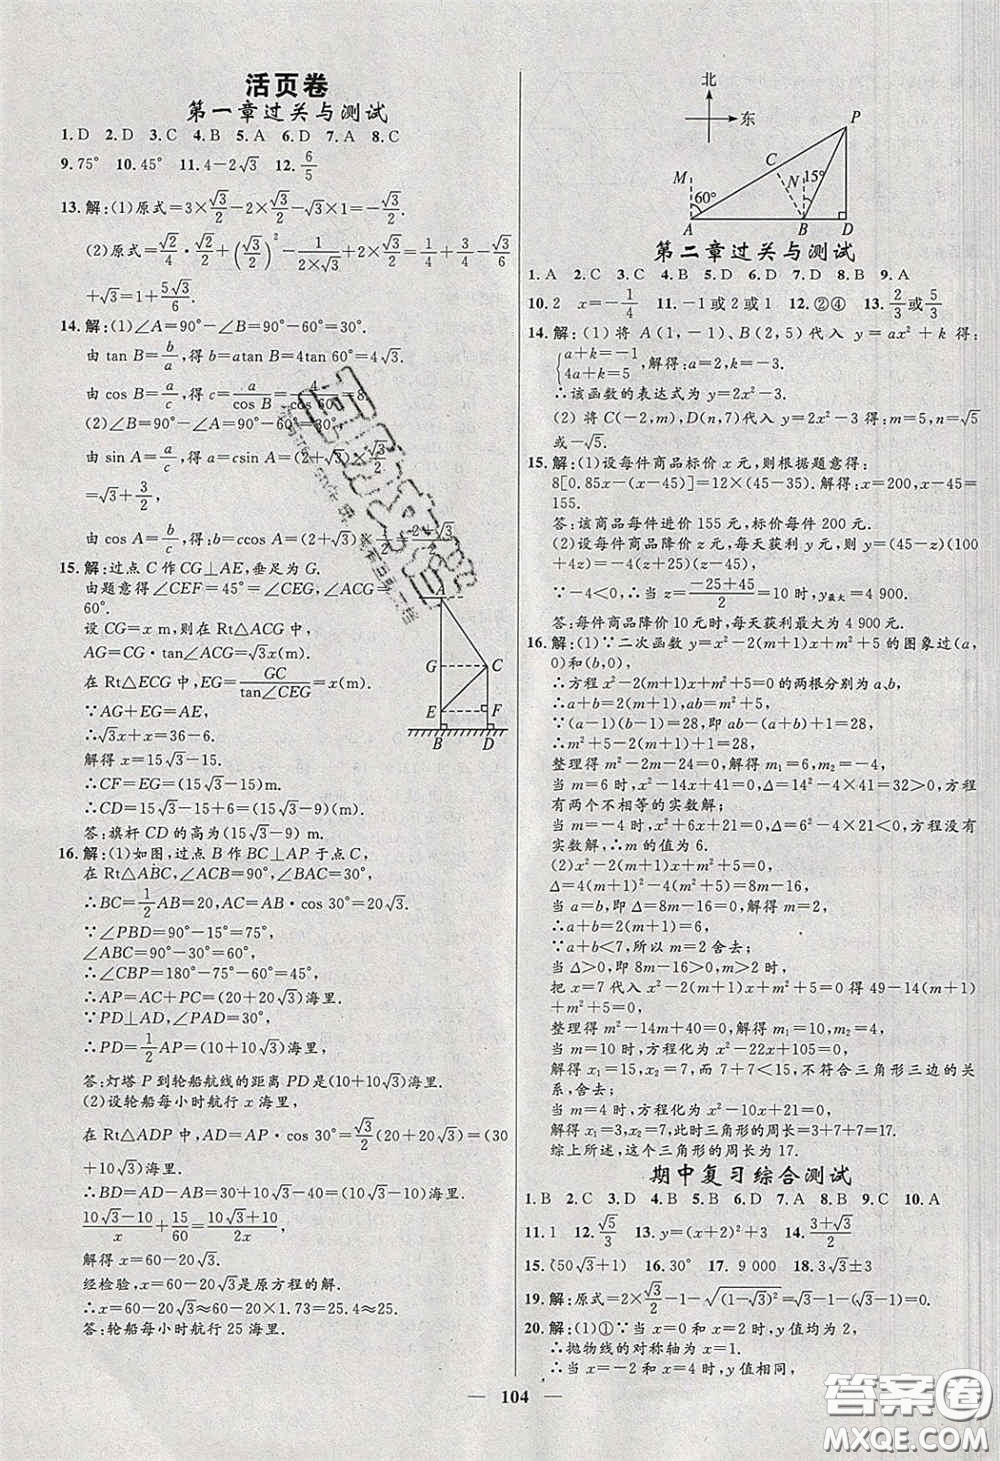 活页卷
第一章过关与测试
1.D 2.D 3.C 4.B 5.A 6.D 7.A 8.C
9.75° 10.45° 11.4-2√3 12.6/5
13.解:(1)原式=3×√3/2-√3/2-√3×1=-√3.
(2)原式=√2/4·√2/2+(√3/2)²-1/(2×√3/2)+2×√3/2=1/4+3/4-√3/3
+√3=1+5√3/6.
14.解:(1)∠A=90°-∠B=90°-60°=30°.
由 tan B=b/a,得 b=atan B=4tan 60°=4√3.
由 cos B=a/c,得 c=a/cos B=4/cos 60°=8.
(2)∠A=90°-∠B=90°-60°=30°.
由 sin A=a/c,得 a=csin A=(2+√3)×√3/2
=√3+3/2,
由 cos A=b/c,得 b=ccos A=(2+√3)×
15.解:过点 C 作 CG⊥AE,垂足为 G.
由题意得∠CEF=45°=∠CEG,∠ACG=
60°.
设 CG=x m,则在 Rt△ACG 中,
AG=CG·tan∠ACG=√3x(m).
在 Rt△ECG 中,EG=GC/tan∠CEG=x(m).
∵AG+EG=AE,
∴√3x+x=36-6.
解得 x=15√3-15.
∴CF=EG=(15√3-15)(m).
∴CD=15√3-15+6=(15√3-9)(m).
答:旗杆 CD 的高为(15√3-9) m.
16.解:(1)如图,过点 B 作 BC⊥AP 于点 C,
在 Rt△ABC 中,∠ACB=90°,∠BAC=30°,
∴BC=1/2AB=20,AC=AB·cos 30°=20√3.
∵∠PBD=90°-15°=75°,
∠ABC=90°-30°=60°,
∴∠CBP=180°-75°-60°=45°.
∴AP=AC+PC=(20+20√3)海里.
∵PD⊥AD,∠PAD=30°,
∴PD=1/2AP=(10+10√3)海里.
答:灯塔 P 到轮船航线的距离 PD 是(10+10√3)海里.
(2)设轮船每小时航行 x 海里,
在 Rt△ADP 中,AD=AP·cos 30°=√3/2(20+20√3)=(30
+10√3)海里.
∴BD=AD-AB=30+10√3-40=(10√3-10)海里.
(10√3-10)/x+15/60=(10√3+10)/2x,
解得 x=60-20√3.
经检验,x=60-20√3是原方程的解.
∴x=60-20√3≈60-20×1.73=25.4≈25.
答:轮船每小时航行 25 海里.
A
G
C
E
F
B
D
北
东
P
C
M
N
15°
60°
A
B
D
第二章过关与测试
1.A 2.C 3.C 4.B 5.D 6.D 7.D 8.B 9.A
10.2 x=-1/4 11.-1或2或1 12.②④ 13.2/3或5/3
14.解:(1) 将 A(1,-1)、B(2,5) 代入 y=ax²+k 得:
{a+k=-1 4a+k=5,解得:a=2,k=-3.
∴该函数的表达式为 y=2x²-3.
(2) 将 C(-2,m),D(n,7)代入 y=2x²-3 得:m=5,n=√5
或-√5.
15.解:(1)设每件商品标价 x 元,则根据题意得:
8[0.85x-(x-45)]=12×(45-35).解得:x=200,x-45=
155.
答:该商品每件进价 155 元,标价每件 200 元.
(2)设每件商品降价 z 元,每天获利 y 元,y=(45-z)(100
+4z)=-4z²+80z+4 500.
∵-4<0,∴当 z=(-25+45)/2=10时,y最大=4 900.
答:每件商品降价 10 元时,每天获利最大为 4 900 元.
16.解:(1)∵二次函数 y=x²-2(m+1)x+m²+5 的图象过(a,
0)和(b,0),
∴方程 x²-2(m+1)x+m²+5=0 的两根分别为 a、b,
∴a+b=2(m+1),ab=m²+5,
∵(a-1)(b-1)=28,即 ab-(a+b)+1=28,
∴m²+5-2(m+1)+1=28,
整理得 m²-2m-24=0,解得 m₁=6,m₂=-4,
当 m=6 时,x²-14x+41=0,Δ=14²-4×41=32>0,方程
有两个不相等的实数解;
当 m=-4 时,x²+6x+21=0,Δ=6²-4×21<0,方程没有
实数解,∴m 的值为 6.
(2)x²-2(m+1)x+m²+5=0,
Δ=4(m+1)²-4(m²+5)=8m-16,
当 a=b,即 Δ=0,即 8m-16=0,解得 m=2,
∴a+b=2(m+1)=6,
∵a+b<7,所以 m=2 舍去;
当 Δ>0,即 8m-16>0,解得 m>2,
把 x=7 代入 x²-2(m+1)x+m²+5=0 得 49-14(m+1)+m²+5=0,
整理得 m²-14m+40=0,解得 m₁=10,m₂=4,
当 m=10 时,方程化为 x²-22x+105=0,
解得 x₁=15,x₂=7,而 7+7<15,不符合三角形三边的关
系,舍去;
当 m=4 时,方程化为 x²-10x+21=0,
解得 x₁=3,x₂=7,此时三角形的周长=3+7+7=17.
综上所述,这个三角形的周长为 17.
期中复习综合测试
1.B 2.C 3.D 4.B 5.B 6.D 7.A 8.B 9.C 10.A
11.1 12.√5/3 13.y=(x+2)²+3 14.(3+√3)/2
15.(50√3+1) 16.30° 17.9 000 18.3√3±3
19.解:原式=2×√3/2-1-√(1-√3)²=√3-1-√3+1=0.
20.解:(1)①∵当 x=0 和 x=2 时,y 值均为 2,
∴抛物线的对称轴为 x=1.
∴当 x=-2 和 x=4 时,y 值相同,
104
答案卷
MXQE.COM